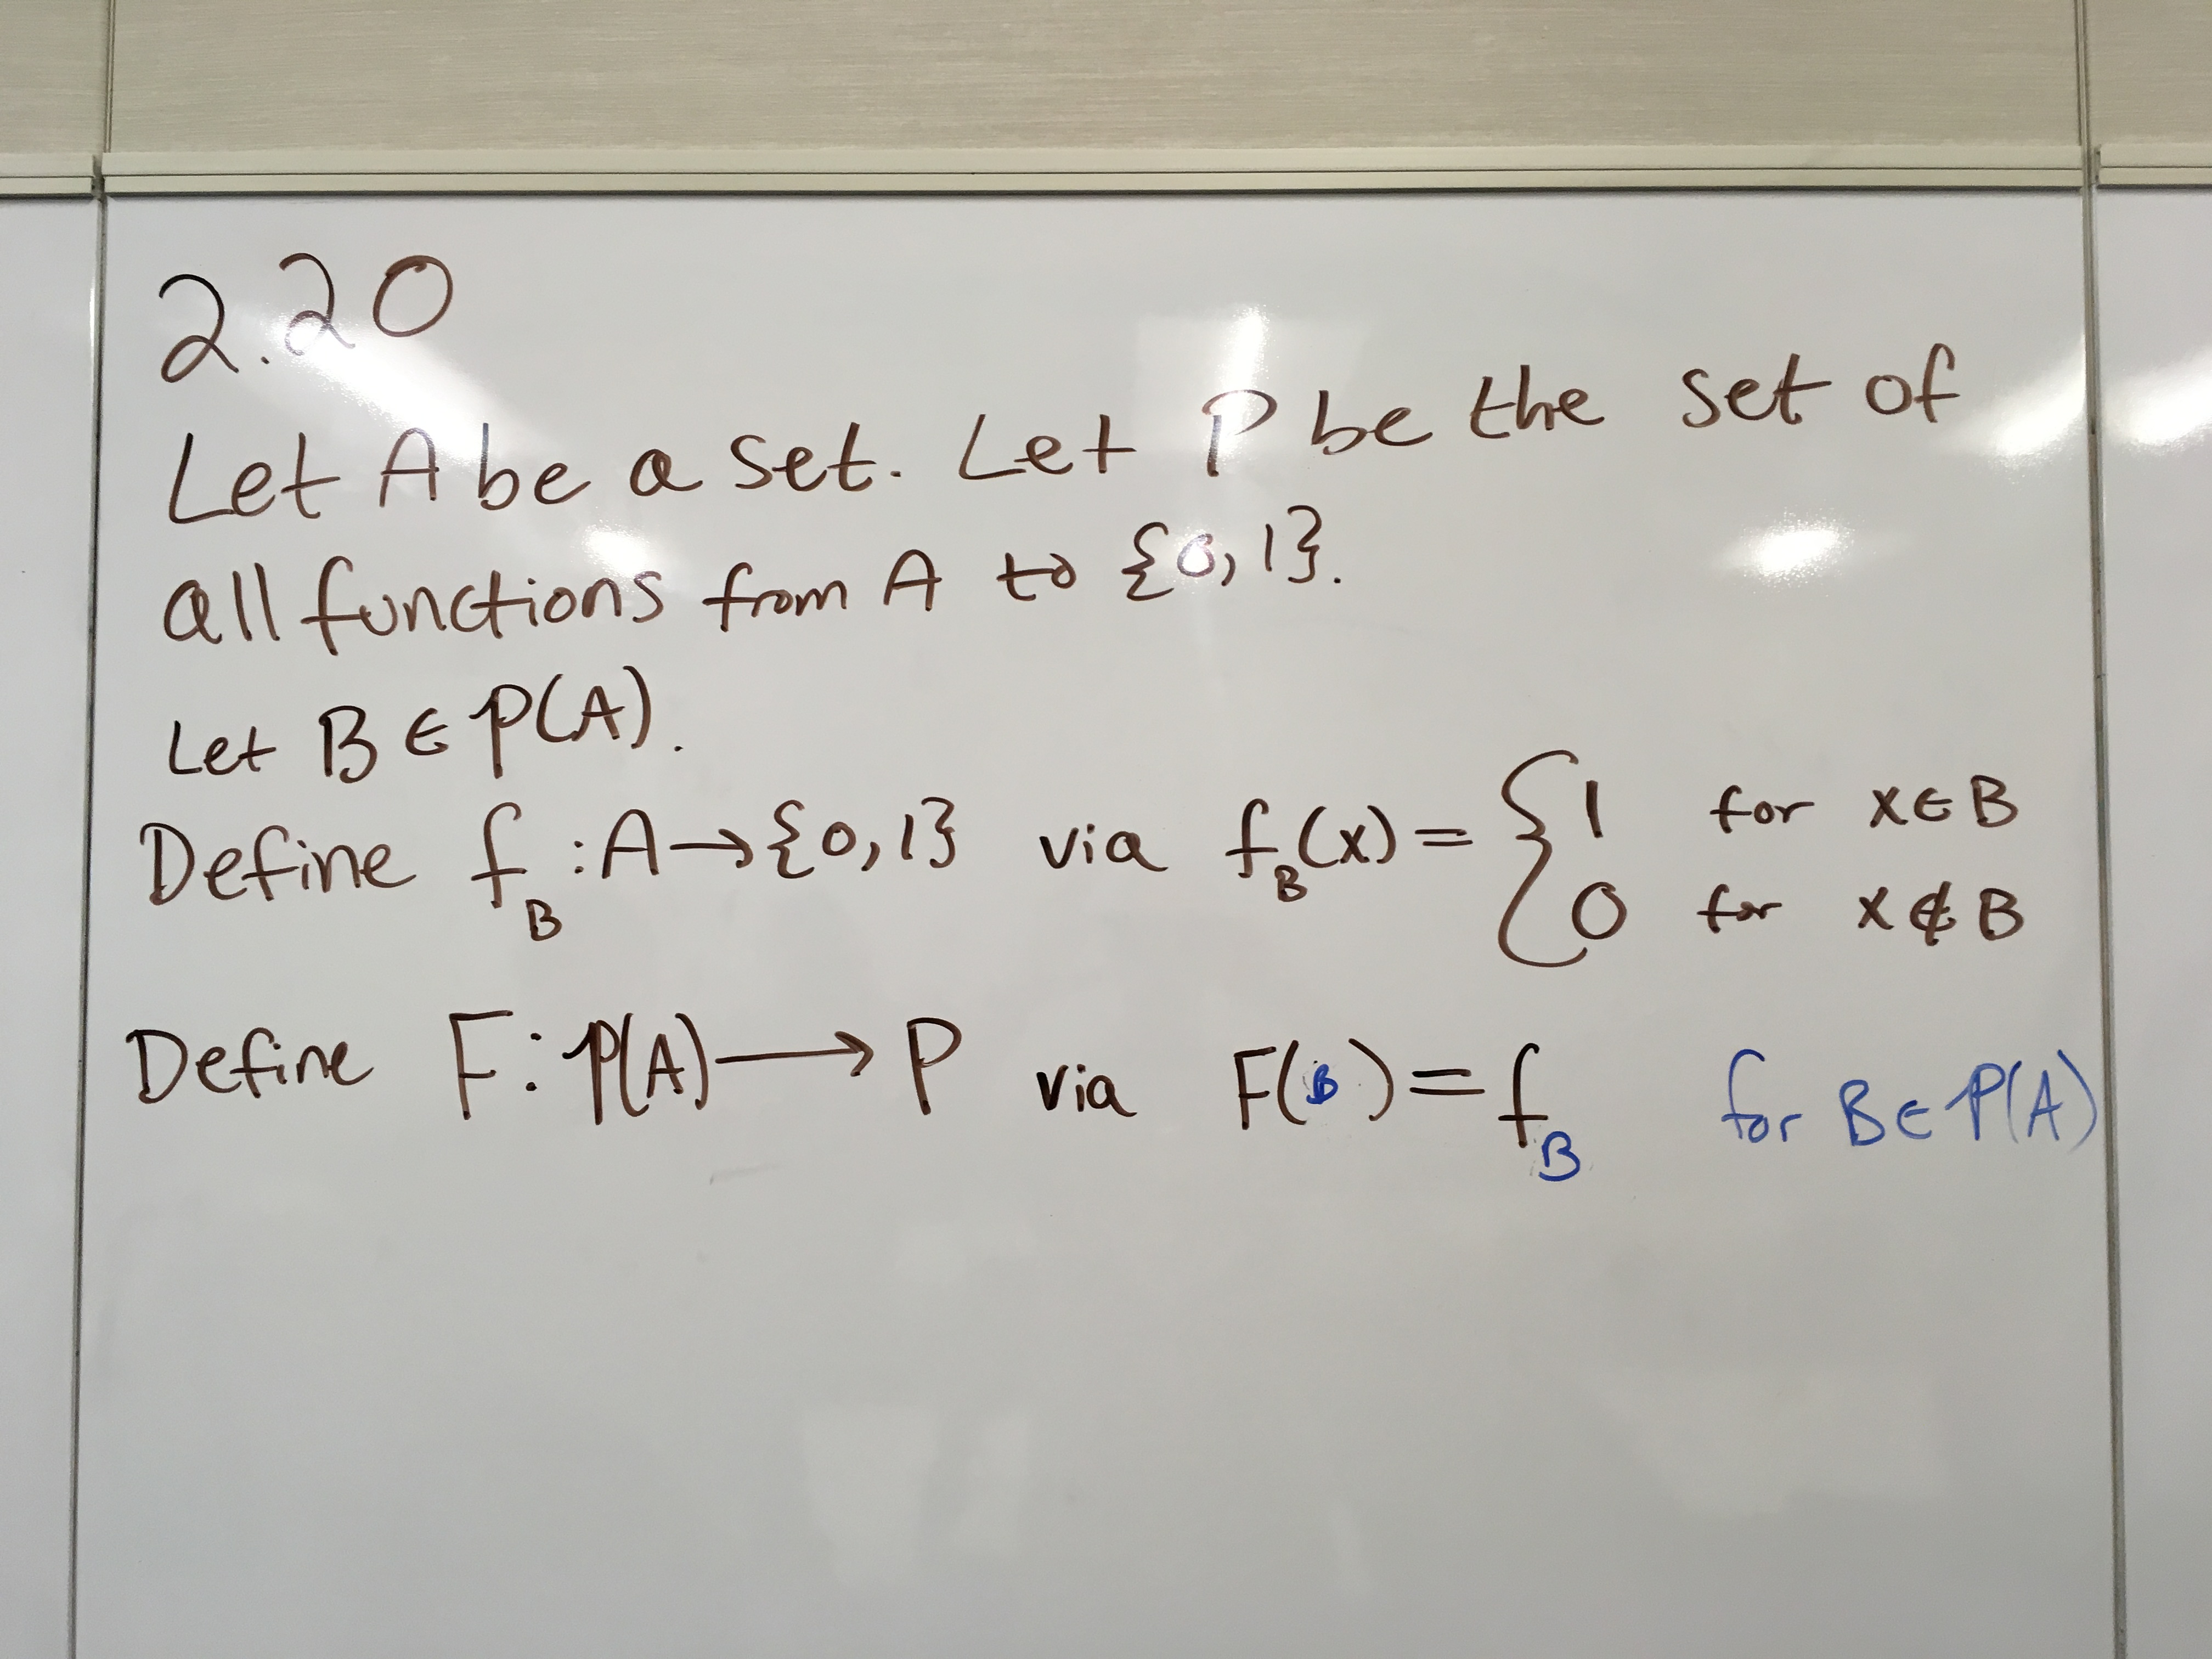 2.20
Let A be a set. Let P be the set of
all functions from A to {0,1}.
Let B ∈ P(A).
Define f_B : A → {0,1} via f_B(x) = { 1 for x ∈ B
0 for x ∉ B
Define F : P(A) → P via F(B) = f_B for B ∈ P(A)